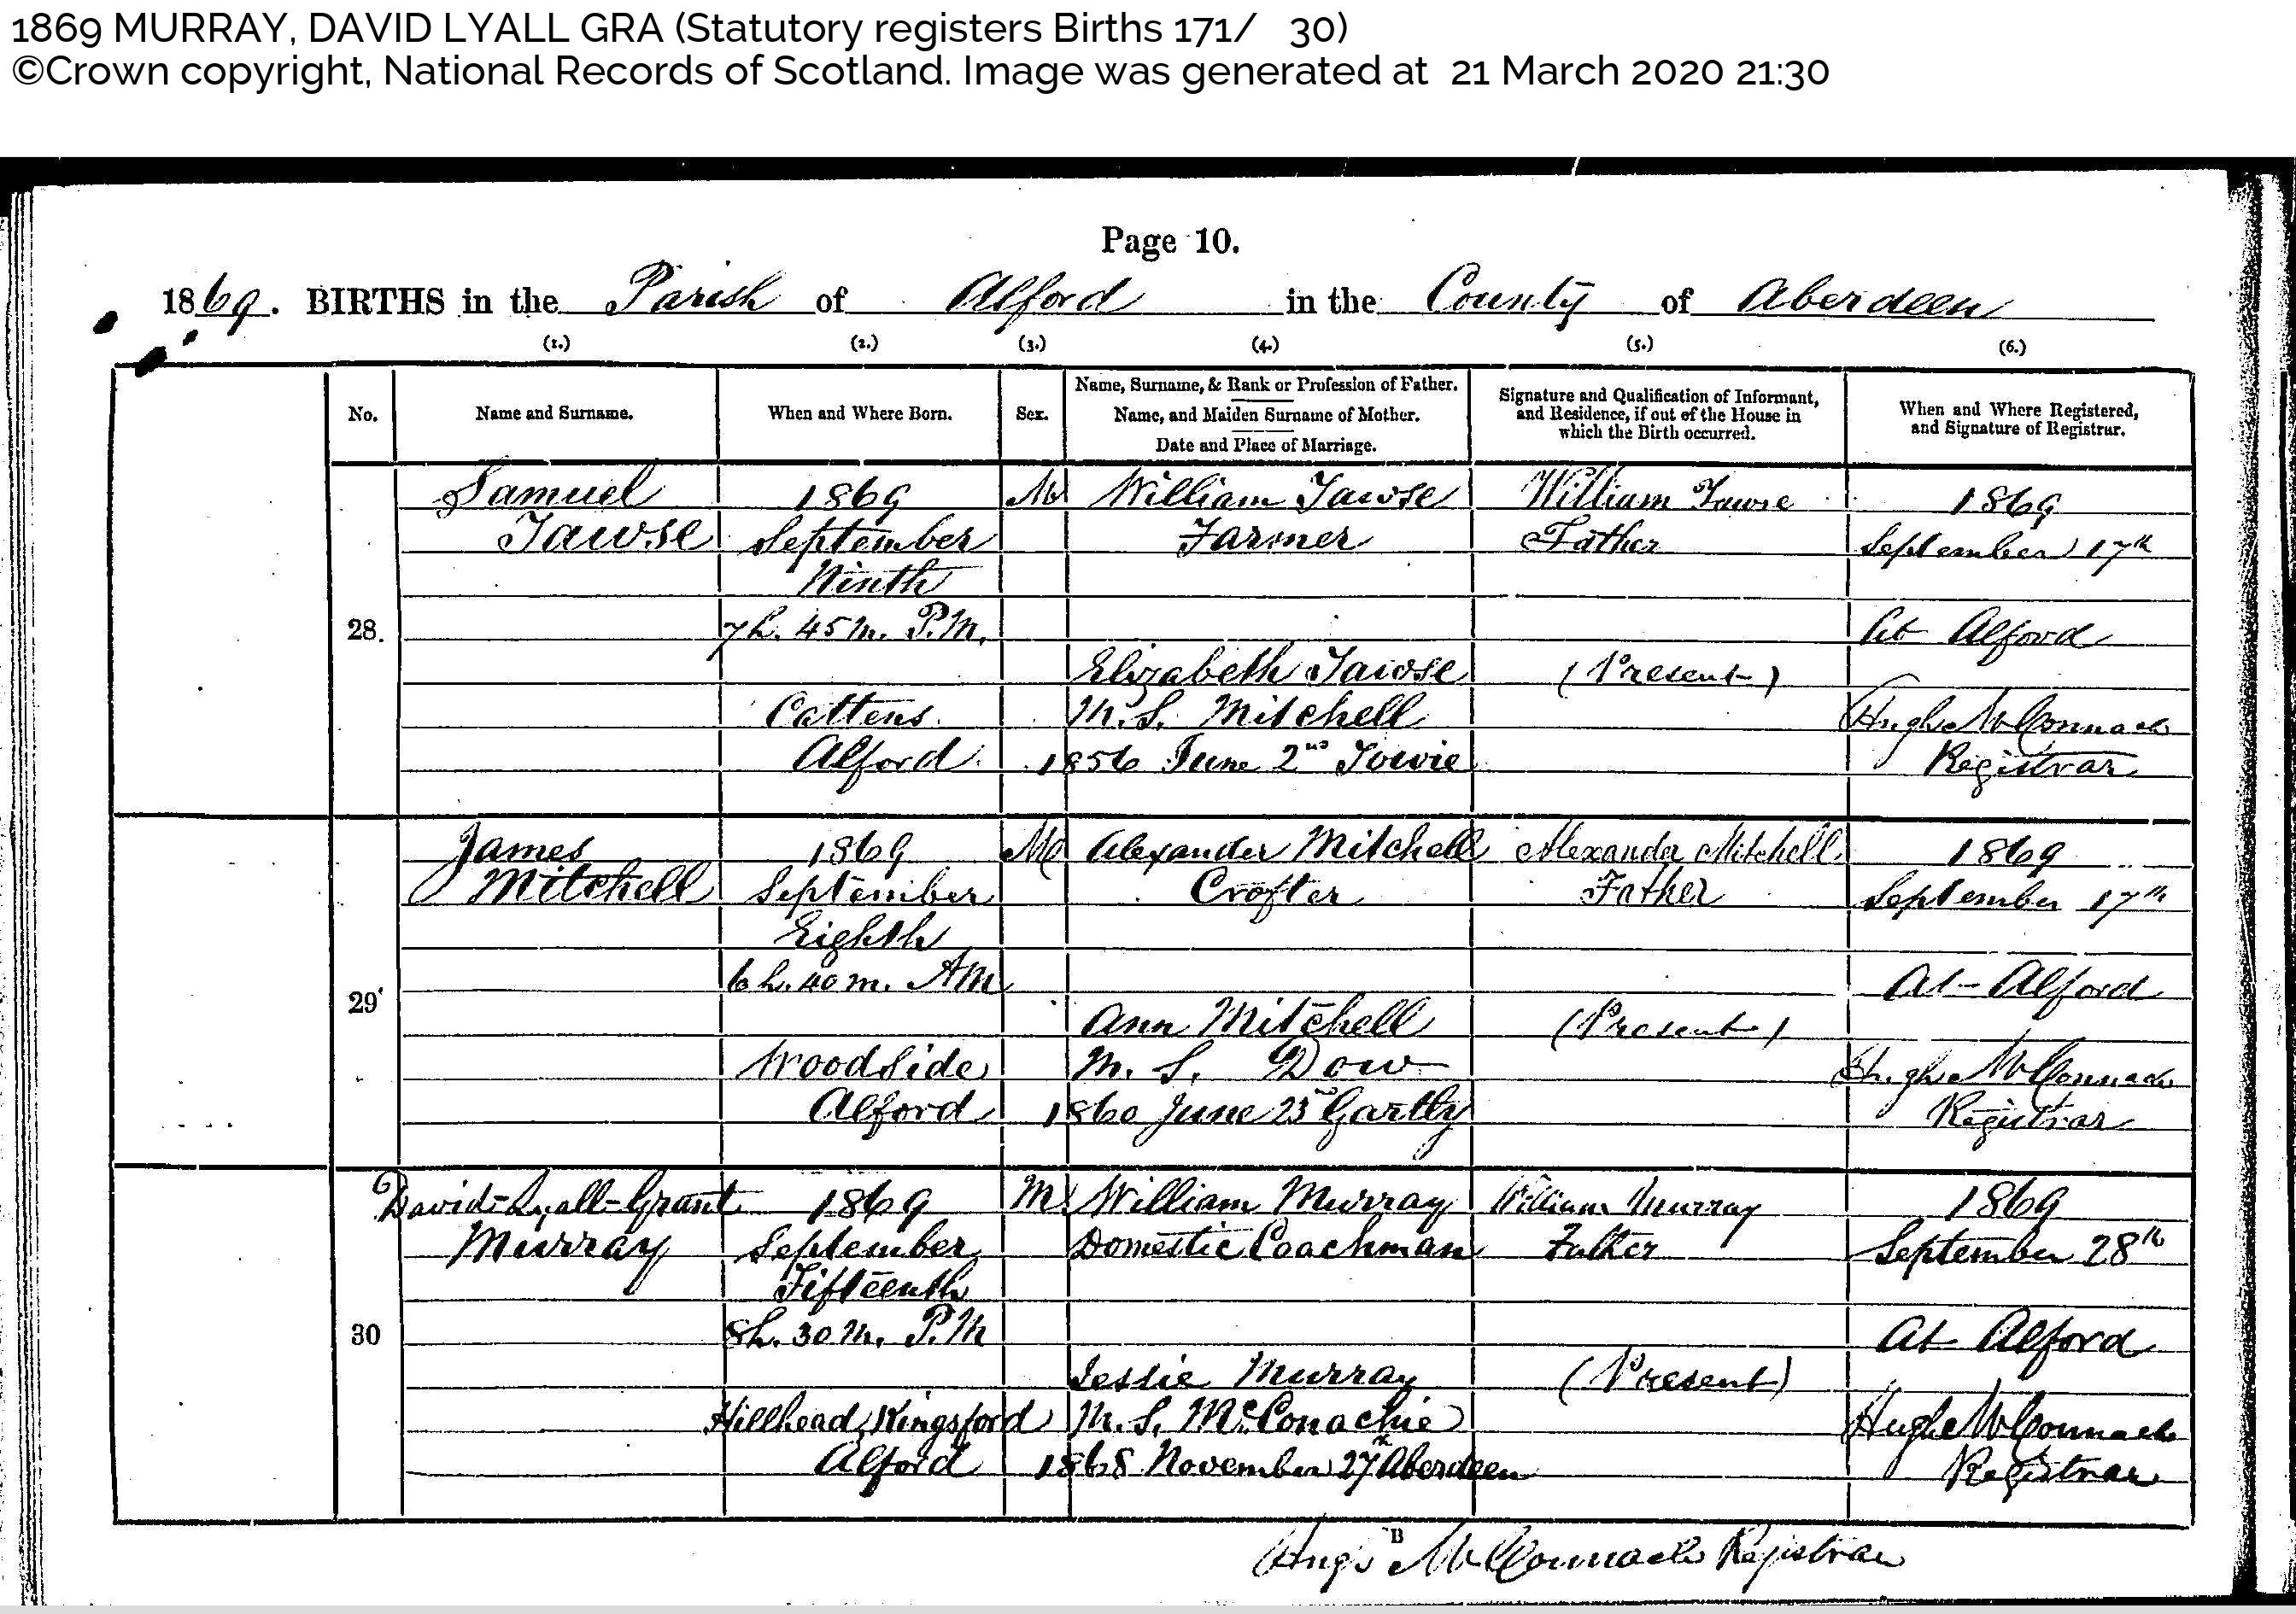 1869 MURRAY, DAVID LYALL GRA (Statutory registers Births 171/ 30)
©Crown copyright, National Records of Scotland. Image was generated at 21 March 2020 21:30
Page 10.
1869. BIRTHS in the Parish of Alford in the County of Aberdeen
(1.) (2.) (3.) (4.) (5.) (6.)
No.
Name and Surname.
When and Where Born.
Sex.
Name, Surname, & Rank or Profession of Father.
Name, and Maiden Surname of Mother.
Date and Place of Marriage.
Signature and Qualification of Informant,
and Residence, if out of the House in
which the Birth occurred.
When and Where Registered,
and Signature of Registrar.
28.
Samuel
Tawse
1869
September
Ninth
7h. 45m. P.M.
Cattens
Alford
M
William Tawse
Farmer
Elizabeth Tawse
M.S. Mitchell
1856 June 2nd Towie
William Tawse
Father
(Present)
1869
September 17th
At Alford
Hugh McConnach
Registrar
29
James
Mitchell
1869
September
Eighth
6h. 40m. AM
Woodside
Alford
M
Alexander Mitchell
Crofter
Ann Mitchell
M. S. Dow
1860 June 23rd Gartly
Alexander Mitchell
Father
(Present)
1869
September 17th
At Alford
Hugh McConnach
Registrar
30
David-Lyall-Grant
Murray
1869
September
Fifteenth
8h. 30m. P.M
Hillhead, Kingsford
Alford
M
William Murray
Domestic Coachman
Jessie Murray
M.S. McConachie
1868 November 27th Aberdeen
William Murray
Father
(Present)
1869
September 28th
At Alford
Hugh McConnach
Registrar
B
Hugh McConnach Registrar